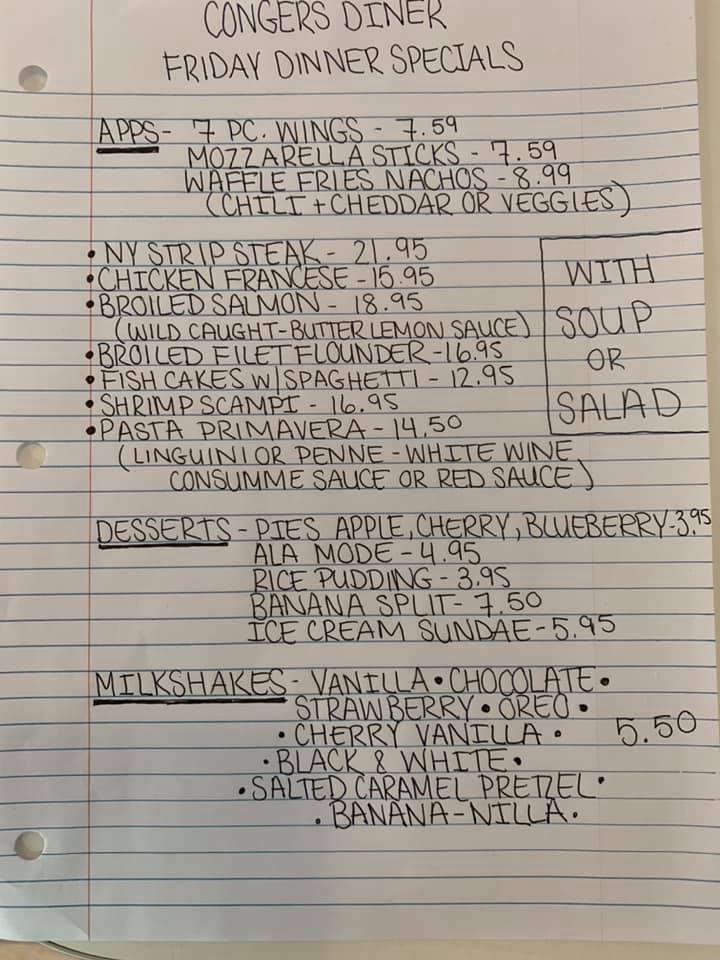 CONGERS DINER
FRIDAY DINNER SPECIALS
APPS- 7 PC. WINGS - 7.59
MOZZARELLA STICKS - 7.59
WAFFLE FRIES NACHOS - 8.99
(CHILI + CHEDDAR OR VEGGIES)
• NY STRIP STEAK - 21.95
• CHICKEN FRANCESE - 15.95
• BROILED SALMON - 18.95
(WILD CAUGHT-BUTTER LEMON SAUCE)
• BROILED FILET FLOUNDER - 16.95
• FISH CAKES W/SPAGHETTI - 12.95
• SHRIMP SCAMPI - 16.95
• PASTA PRIMAVERA - 14.50
(LINGUINI OR PENNE - WHITE WINE
CONSUMME SAUCE OR RED SAUCE)
WITH
SOUP
OR
SALAD
DESSERTS - PIES APPLE, CHERRY, BLUEBERRY-3.95
ALA MODE - 4.95
RICE PUDDING - 3.95
BANANA SPLIT - 7.50
ICE CREAM SUNDAE - 5.95
MILKSHAKES - VANILLA • CHOCOLATE •
STRAWBERRY • OREO •
• CHERRY VANILLA • 5.50
• BLACK & WHITE •
• SALTED CARAMEL PRETZEL •
• BANANA-NILLA •